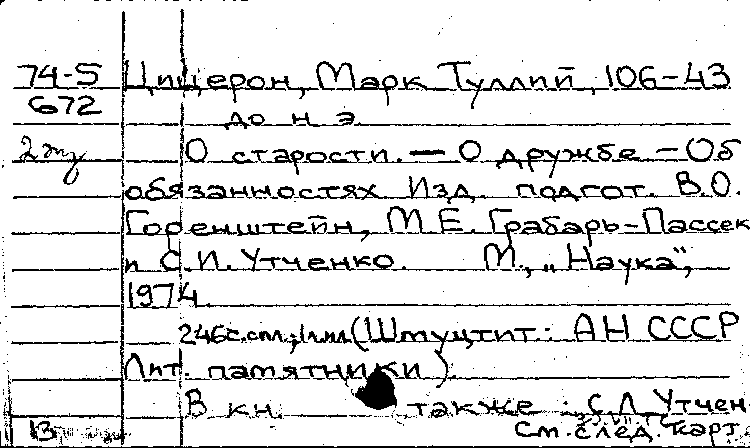 74-5 Цицерон, Марк Туллий, 106-43
672 до н э
2 экз О старости. — О дружбе — Об
обязанностях Изд. подгот. В.О.
Горенштейн, М.Е. Грабарь-Пассек
и С.И. Утченко. М., „Наука",
1974.
246с.спл.;1л.ил (Шмуцтит.: АН СССР
Лит. памятники).
В кн. также: С.Л. Утчен
13 См. след. карт.